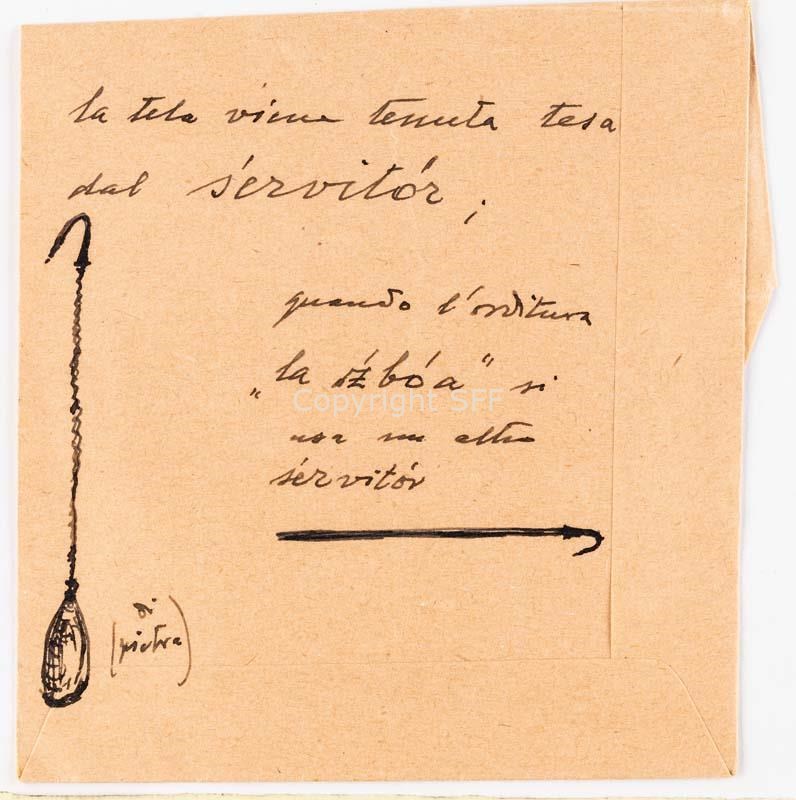 la tela viene tenuta tesa
dal śervitór;
quando l'orditura
„la żbóa" si
usa un altro
śervitór
(di
pietra)
Copyright SFF